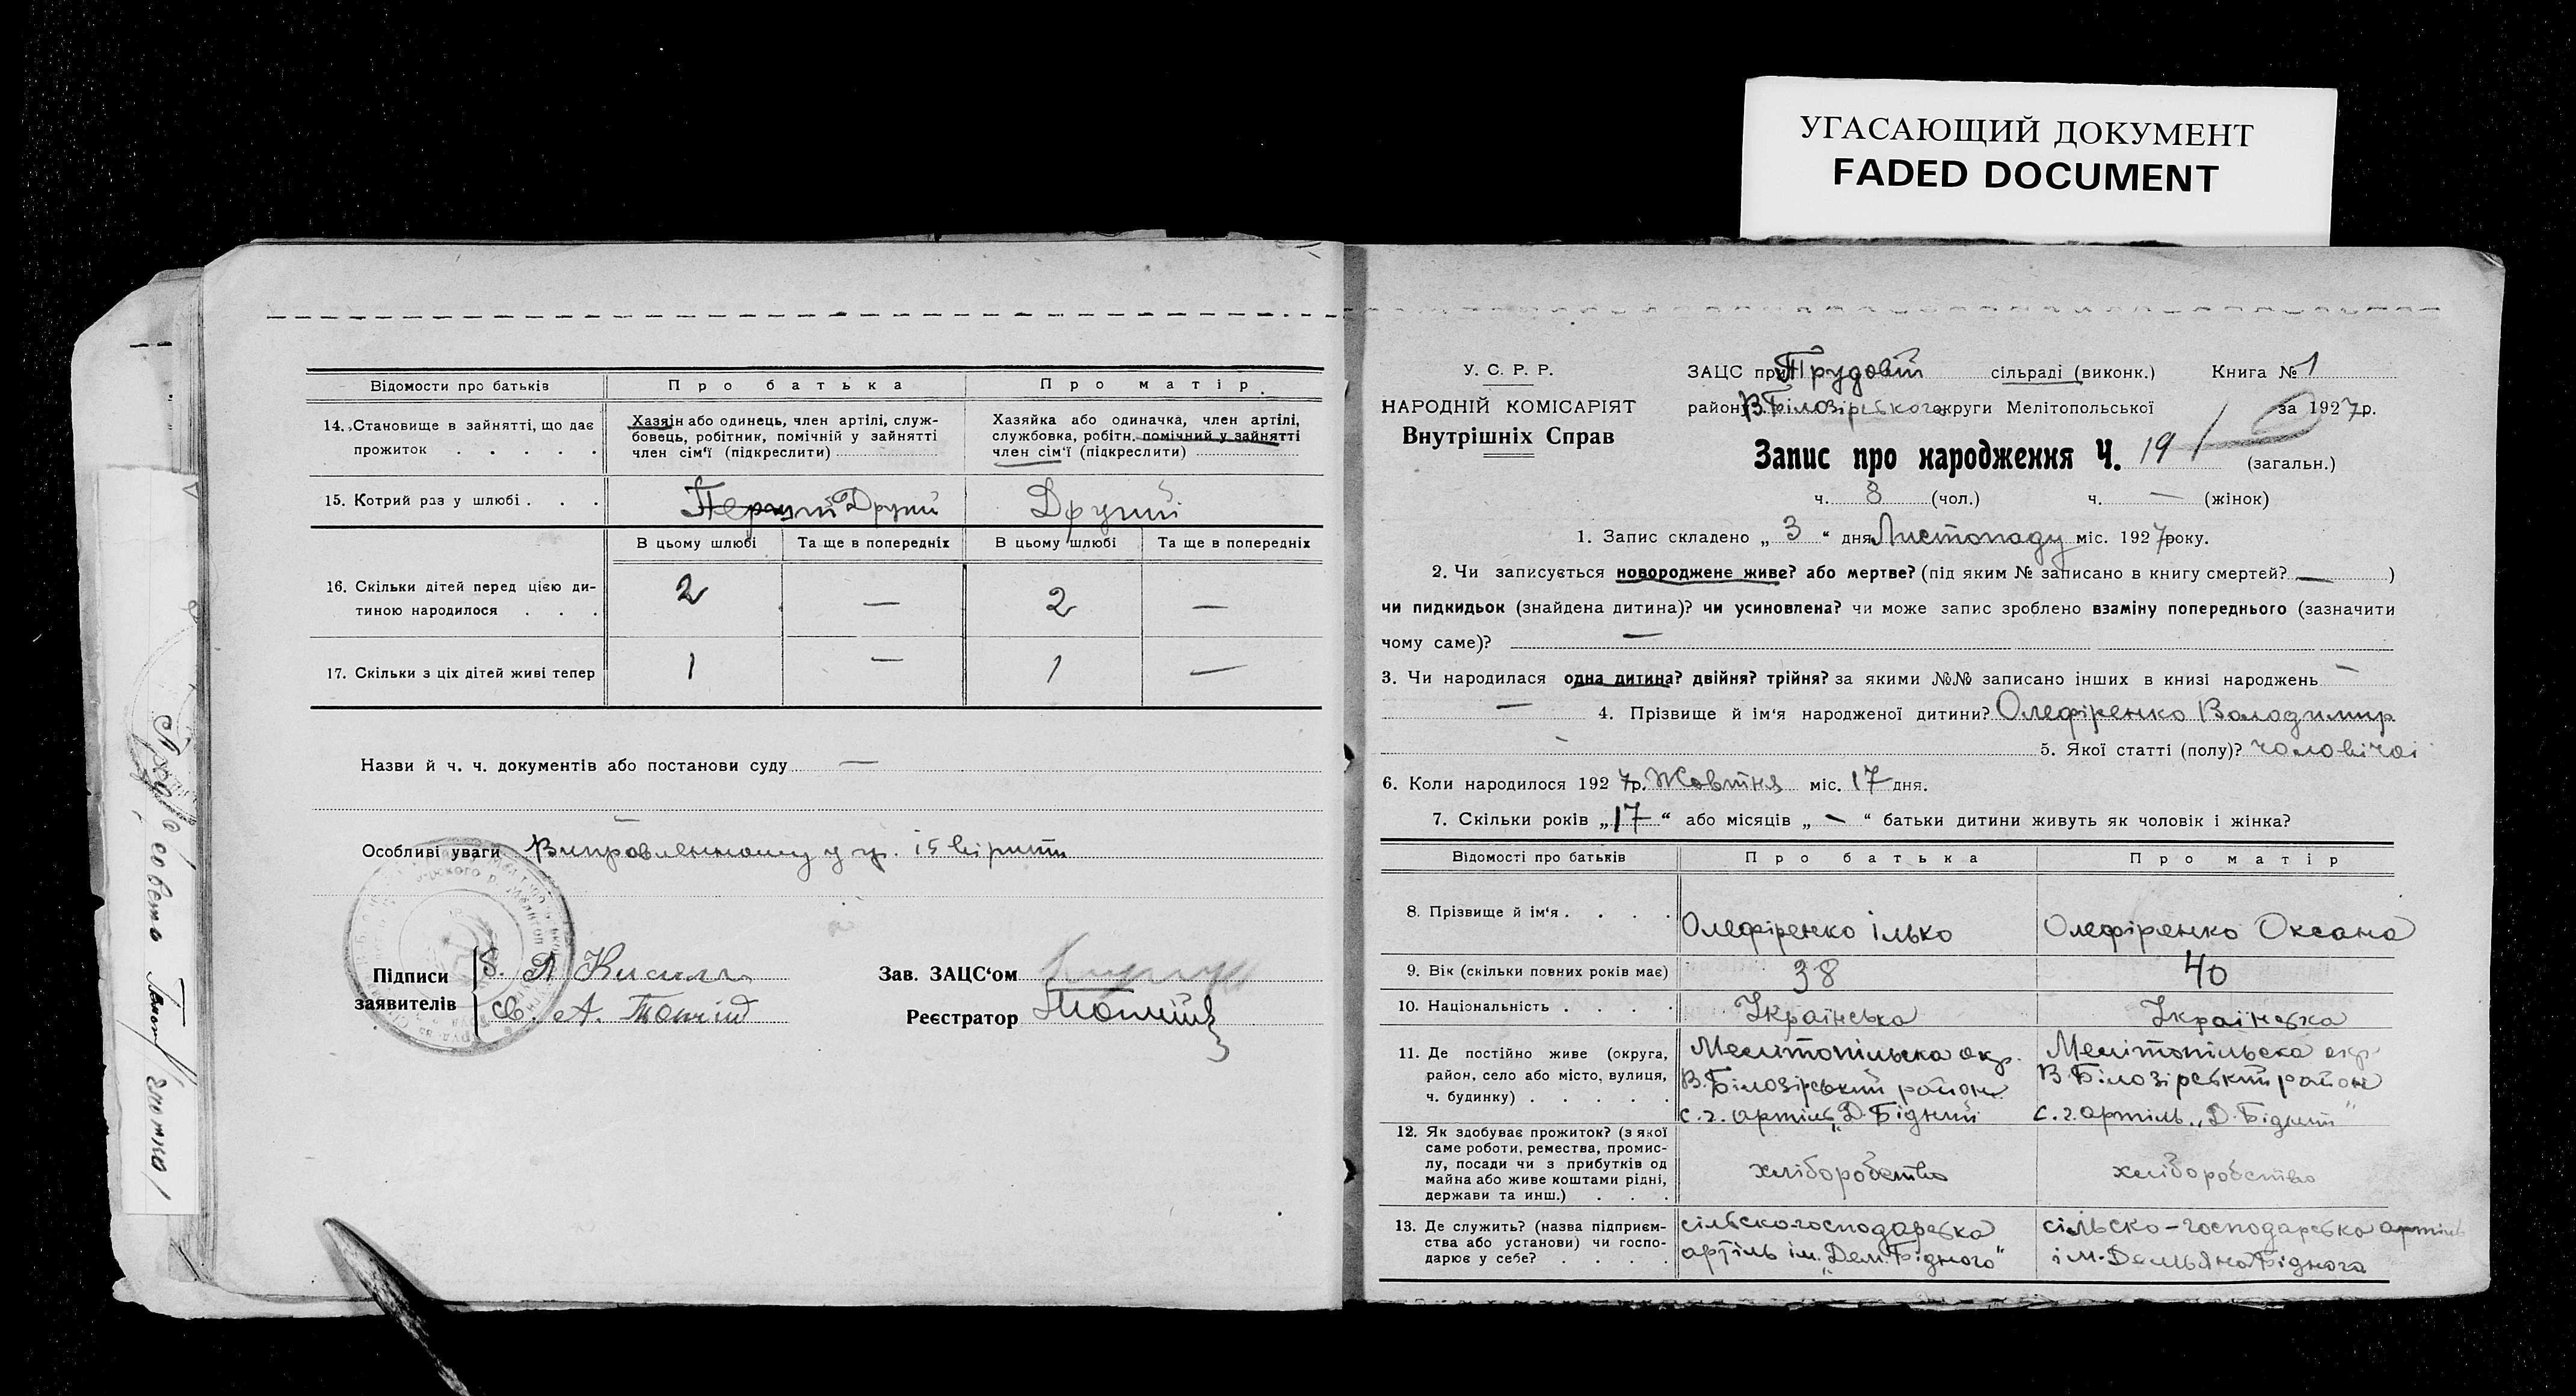 УГАСАЮЩИЙ ДОКУМЕНТ
FADED DOCUMENT
Відомости про батьків
Про батька
Про матір
14. Становище в зайнятті, що дає
прожиток . . . . .
Хазяїн або одинець, член артілі, служ-
бовець, робітник, помічній у зайнятті
член сім'ї (підкреслити)
Хазяйка або одиначка, член артілі,
службовка, робітн. помічний у зайнятті
член сім'ї (підкреслити)
15. Котрий раз у шлюбі . . .
Первий Другий
Другий
В цьому шлюбі
Та ще в попередніх
В цьому шлюбі
Та ще в попередніх
16. Скільки дітей перед цією ди-
тиною народилося . . .
2 — 2 —
17. Скільки з ціх дітей живі тепер
1 — 1 —
Назви й ч. ч. документів або постанови суду —
Особливі уваги Виправленному у гр. 15 вірити
Підписи
заявителів
Зав. ЗАЦС'ом
Реєстратор
У. С. Р. Р.
НАРОДНІЙ КОМІСАРІЯТ
Внутрішніх Справ
ЗАЦС при Трудовій сільраді (виконк.) Книга № 1
району В. Білозірського округи Мелітопольської за 1927 р.
Запис про народження Ч. 19 (загальн.)
ч. 8 (чол.) ч. — (жінок)
1. Запис складено „ 3 “ дня Листопаду міс. 1927 року.
2. Чи записується новороджене живе? або мертве? (під яким № записано в книгу смертей? — )
чи пидкидьок (знайдена дитина)? чи усиновлена? чи може запис зроблено взаміну попереднього (зазначити
чому саме)? —
3. Чи народилася одна дитина? двійня? трійня? за якими №№ записано інших в книзі народжень —
— 4. Прізвище й ім'я народженої дитини? Олефіренко Володимир
5. Якої статті (полу)? чоловічої
6. Коли народилося 1927 р. Жовтня міс. 17 дня.
7. Скільки років „ 17 “ або місяців „ — “ батьки дитини живуть як чоловік і жінка?
Відомості про батьків
Про батька
Про матір
8. Прізвище й ім'я . . . .
Олефіренко Ілько
Олефіренко Оксана
9. Вік (скільки повних років має)
38
40
10. Національність . . . .
Українська
Українська
11. Де постійно живе (округа,
район, село або місто, вулиця,
ч. будинку) . . . . .
Мелітопільска окр.
В. Білозірський район
с.г. артіль „Д. Бідний
Мелітопільска окр
В. Білозірський район
с.г. артіль „Д. Бідний"
12. Як здобуває прожиток? (з якої
саме роботи, ремества, промис-
лу, посади чи з прибутків од
майна або живе коштами рідні,
держави та инш.) . . .
хліборобство
хліборобство
13. Де служить? (назва підприєм-
ства або установи) чи госпо-
дарює у себе? . . . .
сільскогосподарська
артіль ім. „Дем. Бідного"
сільско-господарська артіль
ім. Демьяна Бідного